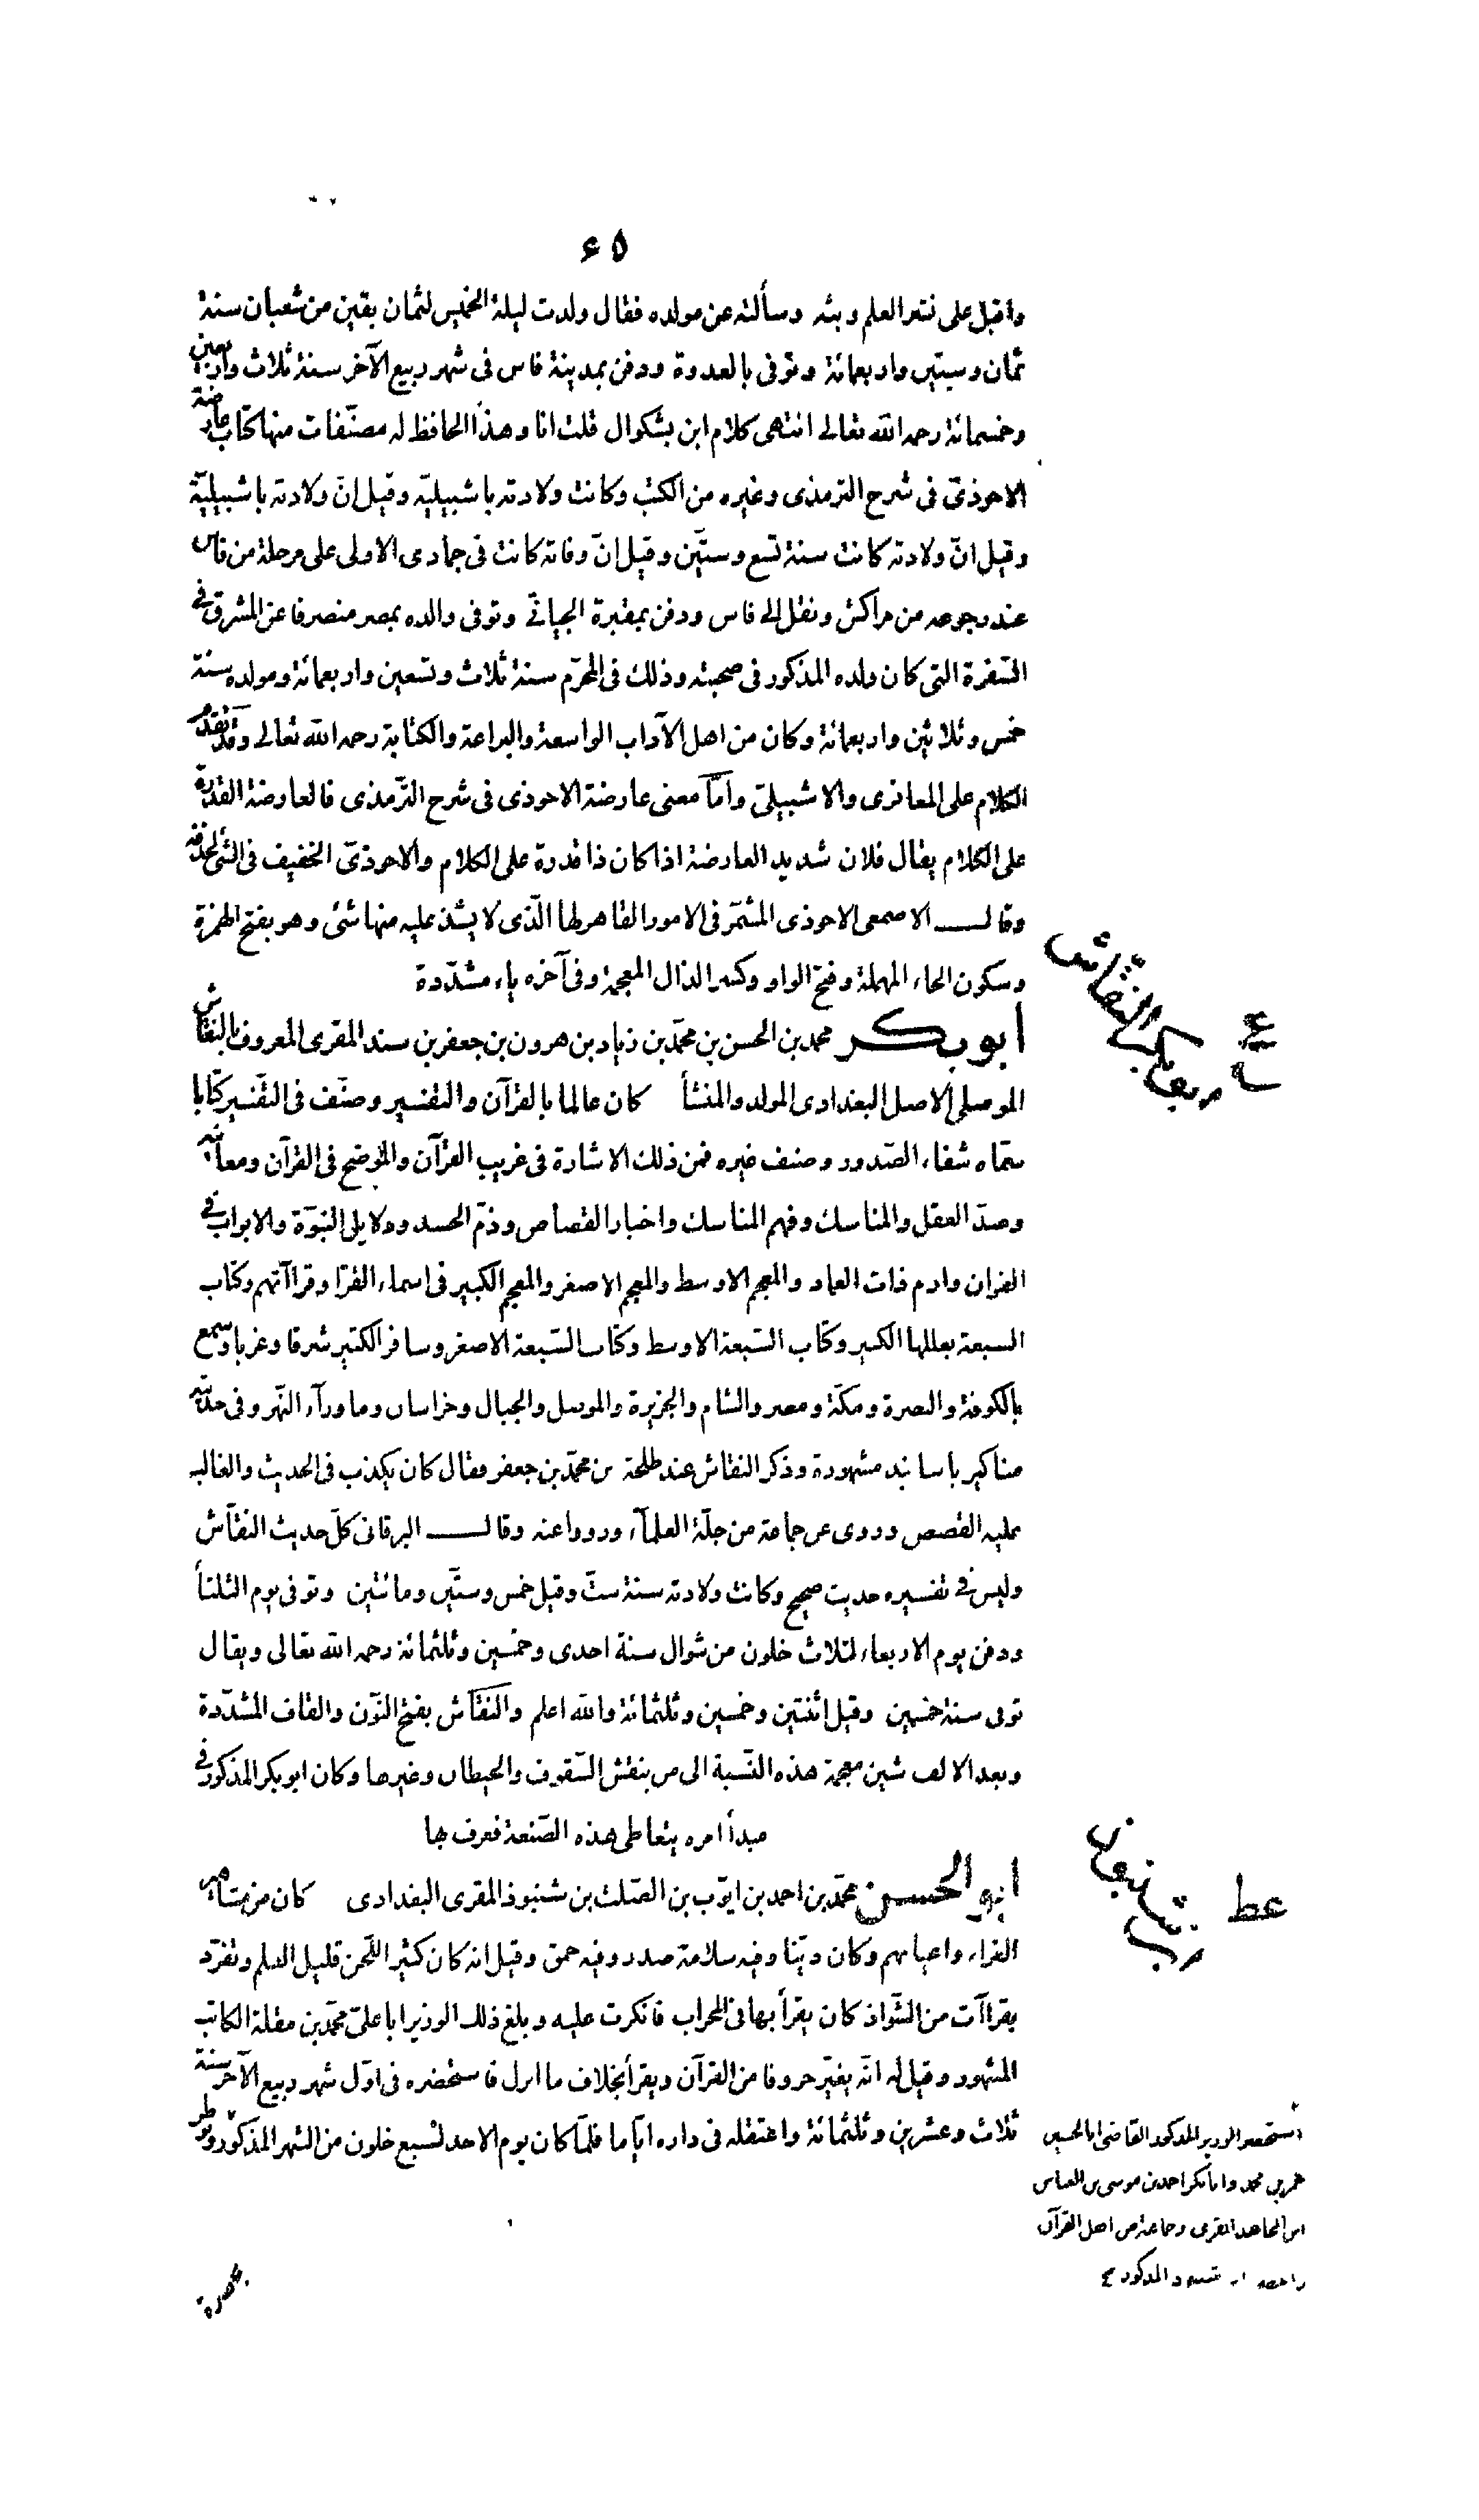 ٤٥
واقبل على نشر العلم وبثه وسألته عن مولده فقال ولدت ليلة الخميس لثمان بقين من شعبان سنة
ثمان وستين واربعمائة وتوفى بالعدوة ودفن بمدينة فاس فى شهر ربيع الآخر سنة ثلاث واربعين
وخمسمائة رحمه الله تعالى انتهى كلام ابن بشكوال قلت انا وهذا الحافظ له مصنّفات منها كتاب عارضة
الاحوذىّ فى شرح الترمذى وغيره من الكتب وكانت ولادته باشبيليّة وقيل انّ ولادته باشبيليّة
وقيل انّ ولادته كانت سنة تسع وستّين وقيل انّ وفاته كانت فى جمادى الاولى على مرحلة من فاس
عند رجوعه من مراكش ونقل الى فاس ودفن بمقبرة الجيانى وتوفى والده بمصر منصرفا عن المشرق فى
السّفرة التى كان ولده المذكور فى صحبته وذلك فى المحرّم سنة ثلاث وتسعين واربعمائة ومولده سنة
خمس وثلاثين واربعمائة وكان من اهل الآداب الواسعة والبراعة والكتابة رحمه الله تعالى وقد تقدّم
الكلام على المعافرى والاشبيلىّ وامّا معنى عارضة الاحوذى فى شرح التّرمذى فالعارضة القدرة
على الكلام يقال فلان شديد العارضة اذا كان ذا قدرة على الكلام والاحوذىّ الخفيف فى الشئ لحذقه
وقال الاصمعى الاحوذى المشمّر فى الامور القاهر لها الّذى لا يشذ عليه منها شئ وهو بفتح الهمزة
وسكون الحاء المهملة وفتح الواو وكسر الذال المعجمة وفى آخره ياء مشدّدة
أبو بكر محمد بن الحسن بن محمّد بن زياد بن هرون بن جعفر بن سند المقرى المعروف بالنقاش
الموصلى الاصل البغدادى المولد والمنشأ كان عالما بالقرآن والتفسير وصنّف فى التّفسير كتابا
سمّاه شفاء الصّدور وصنف غيره فمن ذلك الاشارة فى غريب القرآن والموضح فى القرآن ومعانيه
وصدّ العقل والمناسك وفهم المناسك واخبار القصاص وذمّ الحسد ودلايل النبوّة والابواب فى
القران وارم ذات العماد والمعجم الاوسط والمعجم الاصغر والمعجم الكبير فى اسماء القرّا وقراآتهم وكتاب
السبعة بعللها الكبير وكتاب السّبعة الاوسط وكتاب السّبعة الاصغر وسافر الكثير شرقا وغربا وسمع
بالكوفة والبصرة ومكّة ومصر والشام والجزيرة والموصل والجبال وخراسان وماوراء النّهر وفى حديثه
مناكير باسانيد مشهورة وذكر النقاش عند طلحة بن محمّد بن جعفر فقال كان يكذب فى الحديث والغالب
عليه القصص وروى عن جماعة من جلّة العلمآء ورووا عنه وقال البرقانى كلّ حديث النقّاش
وليس فى تفسيره حديث صحيح وكانت ولادته سنة ستّ وقيل خمس وستّين ومائتين وتوفى يوم الثلثأ
ودفن يوم الاربعاء لثلاث خلون من شوال سنة احدى وخمسين وثلثمائة رحمه الله تعالى ويقال
توفى سنة خمسين وقيل اثنتين وخمسين وثلثمائة والله اعلم والنقّاش بفتح النّون والقاف المشدّدة
وبعد الالف شين معجمة هذه النّسبة الى من ينقش السّقوف والحيطان وغيرها وكان ابو بكر المذكور فى
مبدأ امره يتعاطى هذه الصّنعة فعرف بها
ابو الحسن محمّد بن احمد بن ايّوب بن الصّلت بن شنبوذ المقرى البغدادى كان من مشاهير
القراء واعيانهم وكان ديّنا وفيه سلامة صدر وفيه حمق وقيل انه كان كثير اللّحن قليل العلم وتفرّد
بقراآت من الشّواذ كان يقرأ بها فى المحراب فانكرت عليه وبلغ ذلك الوزير ابا علىّ محمّد بن مقلة الكاتب
المشهور وقيل له انّه يغيّر حروفا من القرآن ويقرأ بخلاف ما انزل فاستحضره فى اوّل شهر ربيع الآخر سنة
ثلاث وعشرين وثلثمائة واعتقله فى داره ايّاما فلمّا كان يوم الاحد لسبع خلون من الشهر المذكور
ابو بكر النقاش
عط
ابن شنبوذ
استحضر الوزير المذكور القاضى ابا الحسين
عمر بن محمد وابا بكر احمد بن موسى بن العباس
ابن المجاهد المقرى وجماعة من اهل القرآن
المذكور